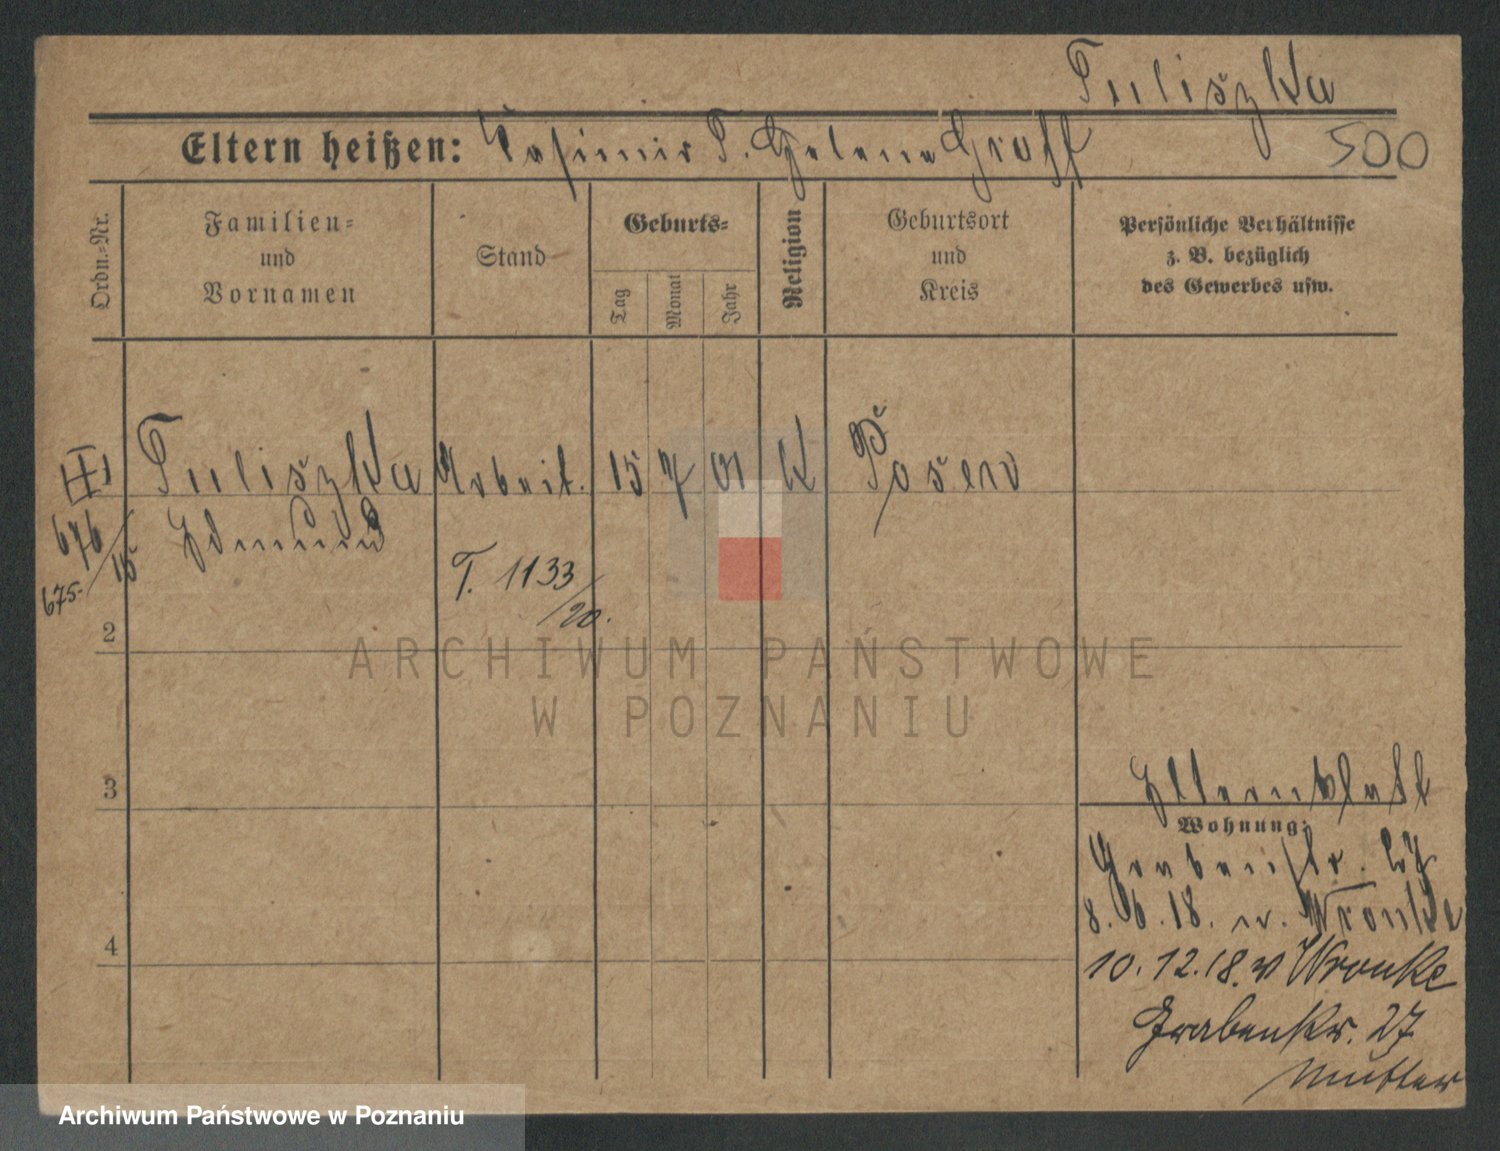 Tuliszka
500
Eltern heißen: Casimir T. Helena Groß
Ordn.=Nr.
Familien=
und
Vornamen
Stand
Geburts=
Tag
Monat
Jahr
Religion
Geburtsort
und
Kreis
Persönliche Verhältnisse
z. B. bezüglich
des Gewerbes usw.
Tuliszka Arbeit. 15 7 01 K Posen
Edmund
676/15
675-
T. 1133/20.
2
3
4
ARCHIWUM PAŃSTWOWE
W POZNANIU
Wohnung:
Grabenstr. 27
8. 6. 18. n. Wronke
10. 12. 18. v Wronke
Grabenstr. 27
Mutter
Archiwum Państwowe w Poznaniu